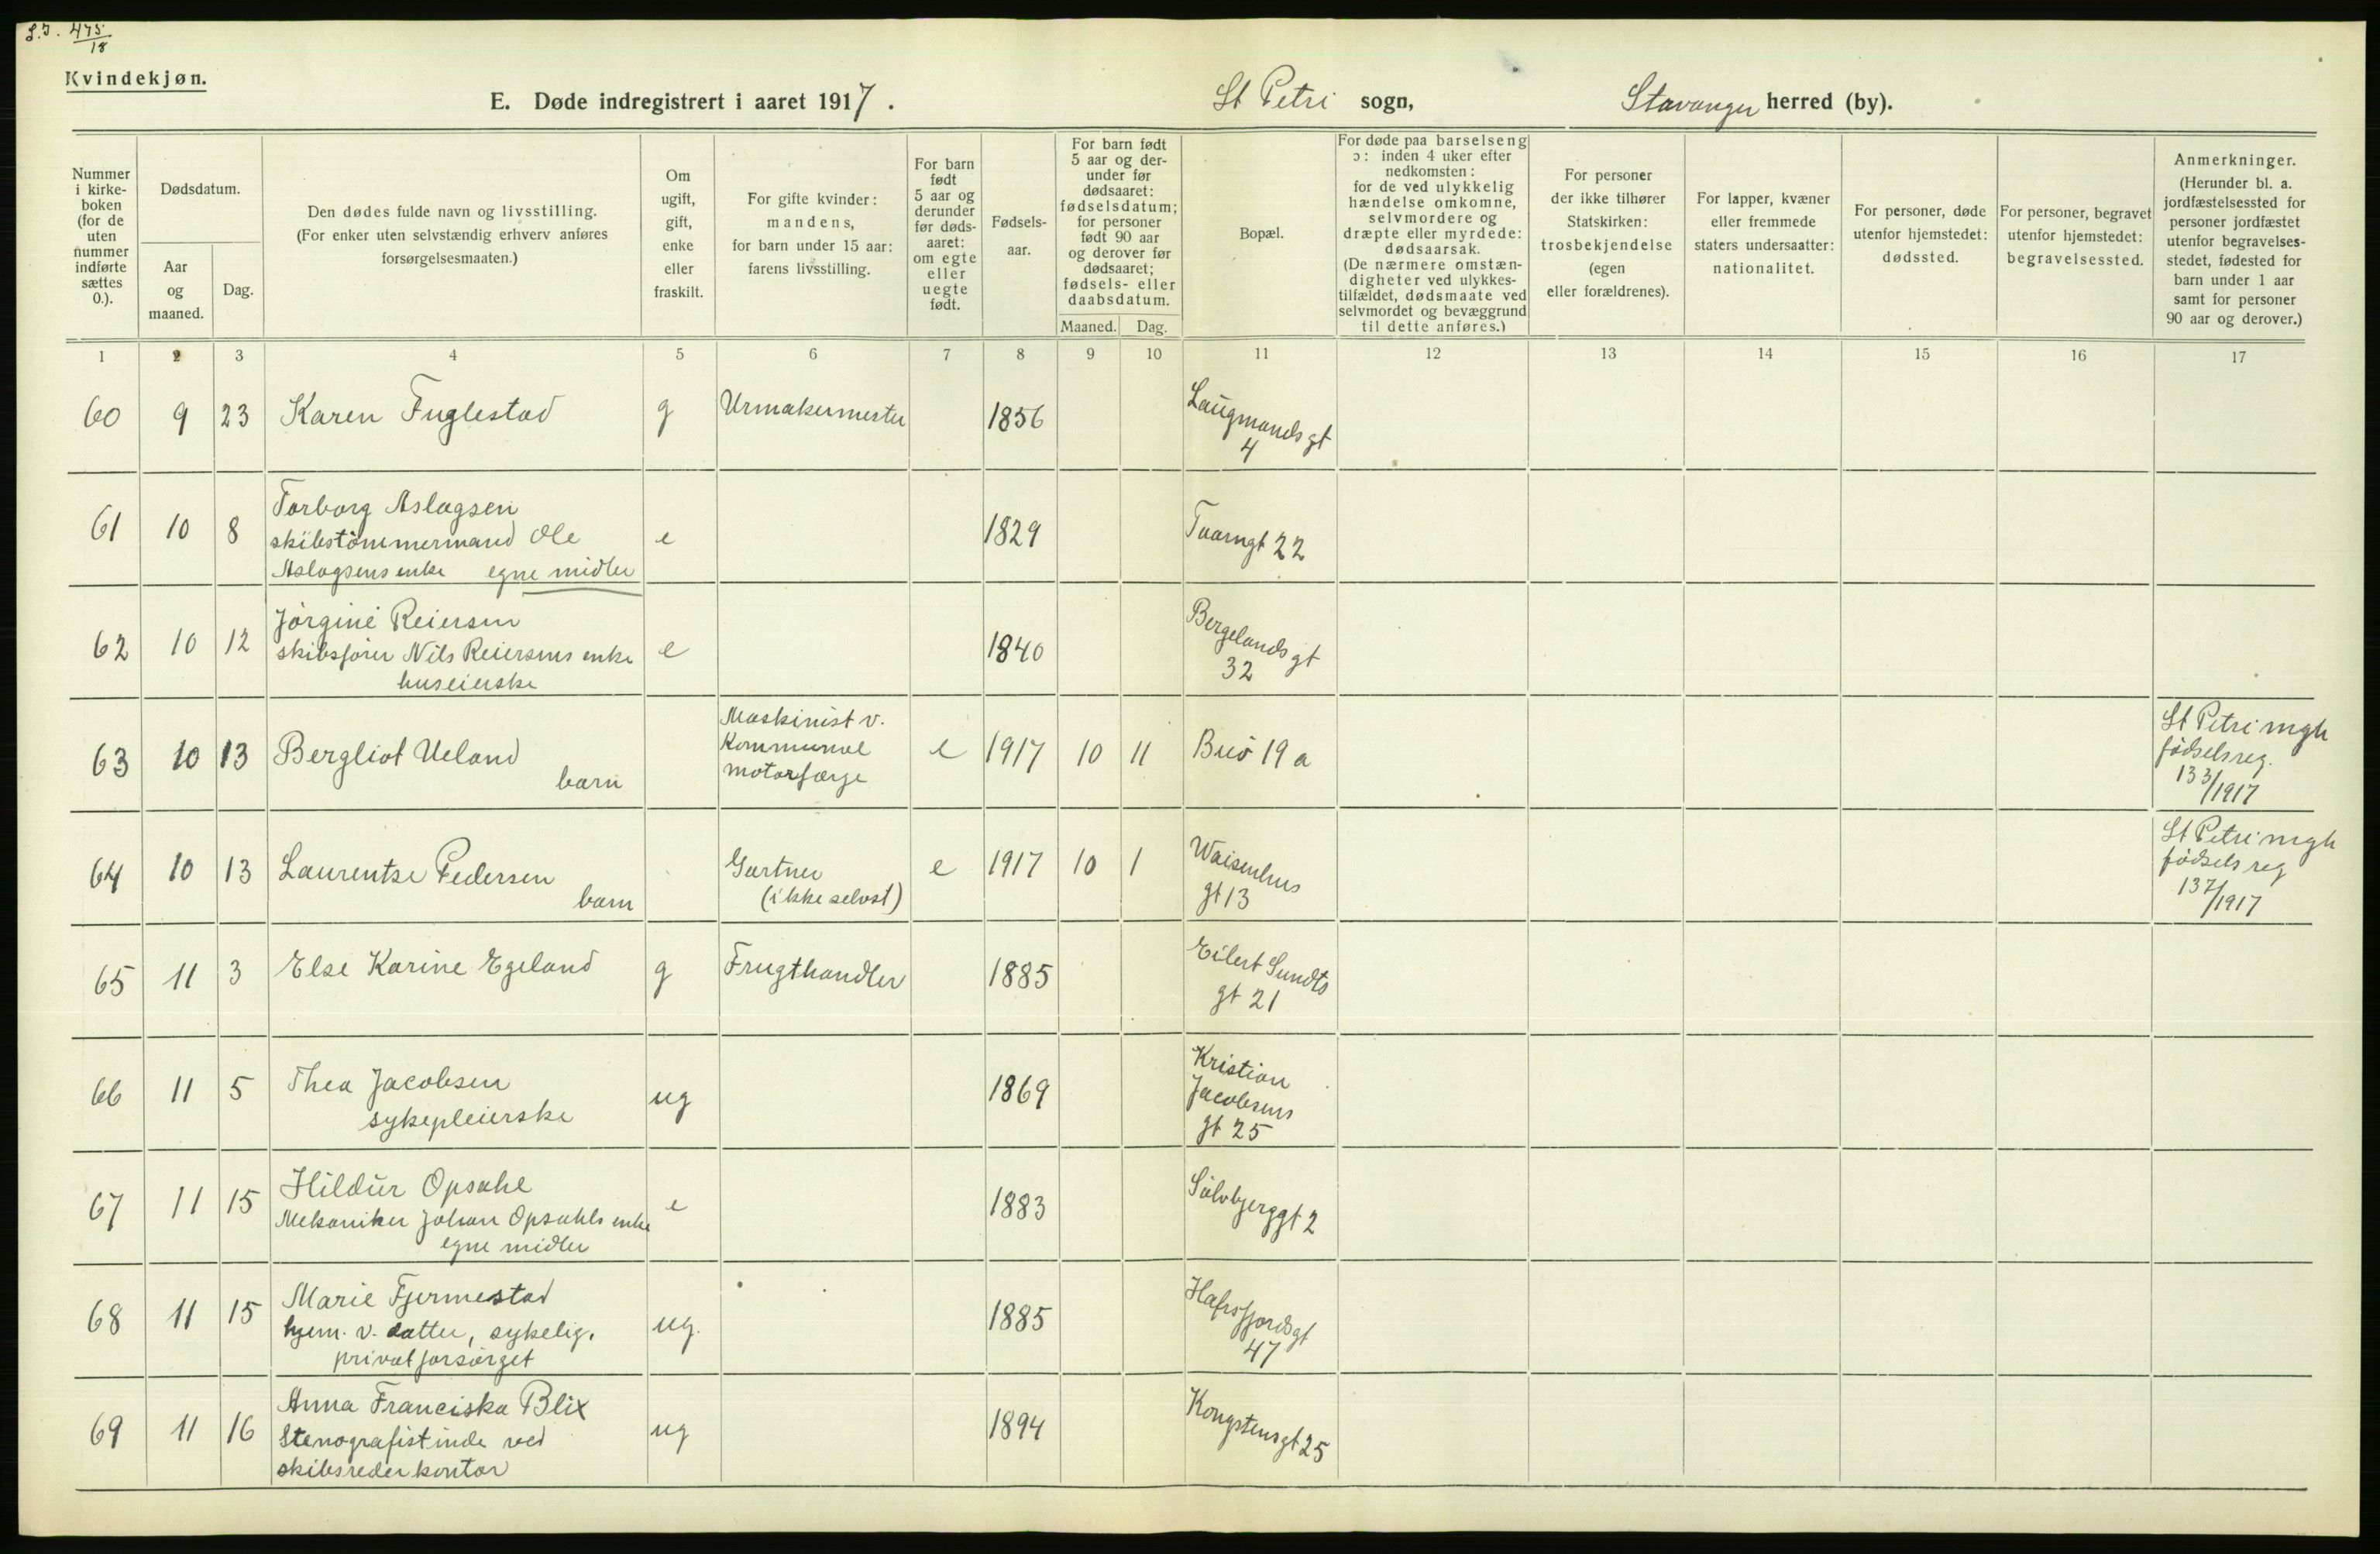 S.J. 475/18
Kvindekjøn.
E. Døde indregistrert i aaret 1917.
St Petri sogn,
Stavanger herred (by).
Nummer i kirkeboken (for de uten nummer indførte sættes 0.).
Dødsdatum.
Aar og maaned.
Dag.
Den dødes fulde navn og livsstilling.
(For enker uten selvstændig erhverv anføres
forsørgelsesmaaten.)
Om ugift, gift, enke eller fraskilt.
For gifte kvinder: mandens, for barn under 15 aar: farens livsstilling.
For barn født 5 aar og derunder før dødsaaret: om egte eller uegte født.
Fødselsaar.
For barn født 5 aar og derunder før dødsaaret: fødselsdatum; for personer født 90 aar og derover før dødsaaret; fødsels- eller daabsdatum.
Maaned. Dag.
Bopæl.
For døde paa barselseng ɔ: inden 4 uker efter nedkomsten: for de ved ulykkelig hændelse omkomne, selvmordere og dræpte eller myrdede: dødsaarsak. (De nærmere omstændigheter ved ulykkestilfældet, dødsmaate ved selvmordet og bevæggrund til dette anføres.)
For personer der ikke tilhører Statskirken: trosbekjendelse (egen eller forældrenes).
For lapper, kvæner eller fremmede staters undersaatter: nationalitet.
For personer, døde utenfor hjemstedet: dødssted.
For personer, begravet utenfor hjemstedet: begravelsessted.
Anmerkninger.
(Herunder bl. a. jordfæstelsessted for personer jordfæstet utenfor begravelsesstedet, fødested for barn under 1 aar samt for personer 90 aar og derover.)
1 2 3 4 5 6 7 8 9 10 11 12 13 14 15 16 17
60 9 23 Karen Fuglestad g Urmakermester 1856 Laugmandsgt
4
61 10 8 Torborg Aslagsen
skibstømmermand Ole
Aslagsens enke egne midler
e 1829 Taarngt 22
62 10 12 Jørgine Reiersen
skibsfører Nils Reiersens enke
huseierske
e 1840 Bergelandsgt
32
63 10 13 Bergliot Ueland
barn
Maskinist v.
Kommunal
motorfærge
e 1917 10 11 Buø 19 a
St Petri mgh
fødselsreg.
133/1917
64 10 13 Laurentse Pedersen
barn
Gartner
(ikke selvst)
e 1917 10 1 Waisenhus
gt 13
St Petri mgh
fødselsreg
137/1917
65 11 3 Else Karine Egeland g Frugthandler 1885 Eilert Sundts
gt 21
66 11 5 Thea Jacobsen
sykepleierske
ug 1869 Kristian
Jacobsens
gt 25
67 11 15 Hildur Opsahl
Mekaniker Johan Opsahls enke
egne midler
e 1883 Sølvbjerggt 2
68 11 15 Marie Fjermestad
hjem. v. datter, sykelig.
privat forsørget
ug. 1885 Hafrsfjordsgt
47
69 11 16 Anna Franciska Blix
Stenografistinde ved
skibsreder kontor
ug 1894 Kongstensgt 25